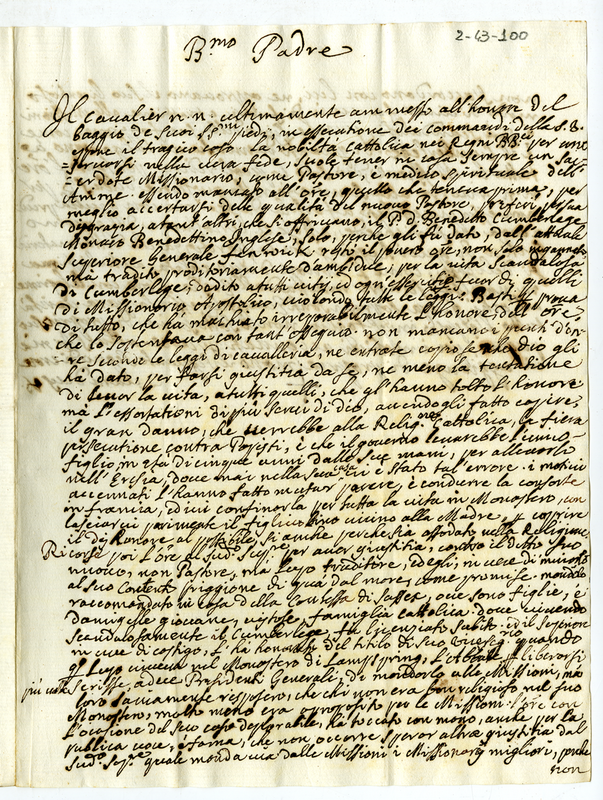 2-43-100
B.mo Padre
Il cavalier N.N. ultimamente ammesso all'honore del
baggio de suoi S.S.mi piedi, in essecutione dei commandi della S.B.
espone il tragico caso. La nobiltà cattolica nei Regni Br.ci per con-
servarsi nella vera fede, suole tener in casa sempre un Sac-
erdote Missionario, come Pastore, e medico spirituale dell'
Anime. essendo mancato all'ore, quello che teneva prima, per
meglio accertarsi delle qualità del nuovo Pastore, preferì per sua
disgrazia, a tant'altri, che si offrivano, il P. d. Benedetto Cumberlege
Monaco Benedettino Inglese, solo, perche gli fù dato, dall'attuale
Superiore Generale Fenwick restò il povero ore, non solo ingannato
mà tradito proditoriamente d'ambidue, per la vita scandalosa
di Cumberlege, dedito a tutti vitij, ed ogn'essercitio fuor di quelli
di Missionario Apostolico, violando tutte le leggi. Basti per prova
di tutto, che hà macchiato irreparabilmente l'honore dell'ore
che lo sostentava con tant'ossequio. non mancano i punti d'on-
re secondo le leggi di cavalleria, ne entrate copiose che Dio gli
hà dato, per farsi giustitia da se, ne meno la tentatione
di levar la vita, a tutti quelli, che gl'hanno tolto l'honore
mà l'essortationi di più servi di Dio, avendogli fatto capire,
il gran danno, che verrebbe alla Relig.ne Cattolica, la fiera
persecutione contra Papisti, è che il governo levarebbe l'unico
figlio, in età di cinque anni dalle sue mani, per allevarlo
nell'Eresia, dove mai nella sua casa vi è stato tal'errore. i motivi
accennati l'hanno fatto mutar parere, è condurre la consorte
in francia, ed ivi confinarla per tutta la vita in Monastero, con
lasciarvi parimente il figliolino vicino alla Madre, p. coprire
il dishonore al possibile, si anche perche sia assodato nella Religione.
Ricorse poi l'ore al sud.o Sup.re per aver giustitia, contro il detto suo
nuovo, non Pastore, mà Lupo traditore, ed egli, in vece di
al suo Convento priggione di quà dal mare, come promise.
raccomandato in casa della Contessa di Sasset, ove sono figlie, è
damigelle giovane, virtuose, famiglia cattolica. dove vivendo
scandalosamente il Cumberlege, fù licenziato subito. ed il Superiore
in vece di castigo, l'hà honorato del titolo di suo Vicario. quando
q.l Lupo viveva nel Monastero di Lamspring, l'Abbate p. liberarsi
più volte scrisse, a dece Presidenti Generali, di mandarlo alle Missioni, ma
loro saviamente risposero, che chi non era bon religioso nel suo
Monastero, molto meno era a proposito per le Missioni. l'ore con
l'ocasione del suo caso deplorabile, hà toccato con mano, anche per la
publica voce, è fama, che non occorre sperar altra giustitia dal
sud.o Sup.re quale manda via dalle Missioni i Missionarij migliori, perche
non